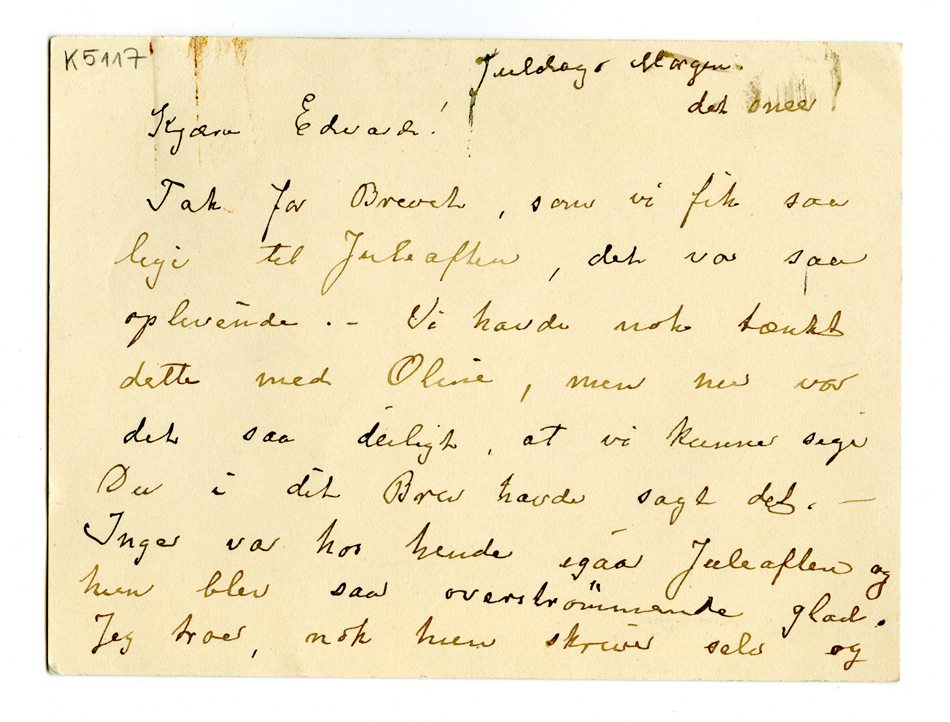 K5117
Juledags Morgen.
det sneer!
Kjære Edvard!
Tak for Brevet, som vi fik saa
lige til Juleaften, det var saa
oplivende. – Vi havde nok tænkt
dette med Oline, men nu var
det saa deiligt, at vi kunne sige
Du i dit Brev havde sagt det. –
Inger var hos hende igaar Juleaften og
hun blev saa overströmmende glad.
Jeg troer, nok hun skriver selv og